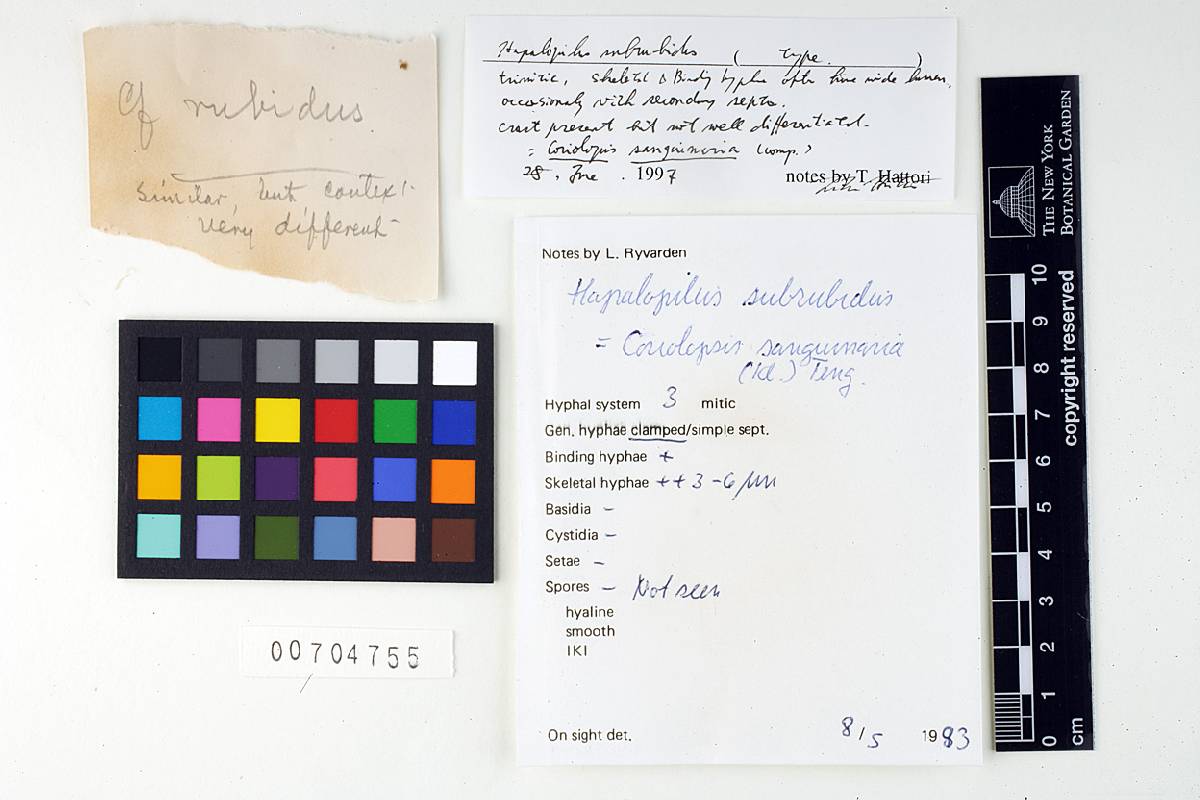 Cf rubidus.
similar, but context
very different
Hapalopilus subrubidus ( type. )
trimitic, skeletal & Binding hypha often have wide lumen,
occasionaly with secondary septa.
crust present but not well differentiated.
= Coriolopsis sanguinaria (comp.)
28, June. 1997 notes by T. Hattori
Notes by L. Ryvarden
Hapalopilus subrubidus
= Coriolopsis sanguinaria
(Kl.) Teng.
Hyphal system 3 mitic
Gen. hyphae clamped/simple sept.
Binding hyphae +
Skeletal hyphae ++ 3-6 µm
Basidia –
Cystidia –
Setae –
Spores – Not seen
hyaline
smooth
IKI
On sight det. 8/5 1983
00704755
THE NEW YORK
BOTANICAL GARDEN
copyright reserved
10
9
8
7
6
5
4
3
2
1
0
cm